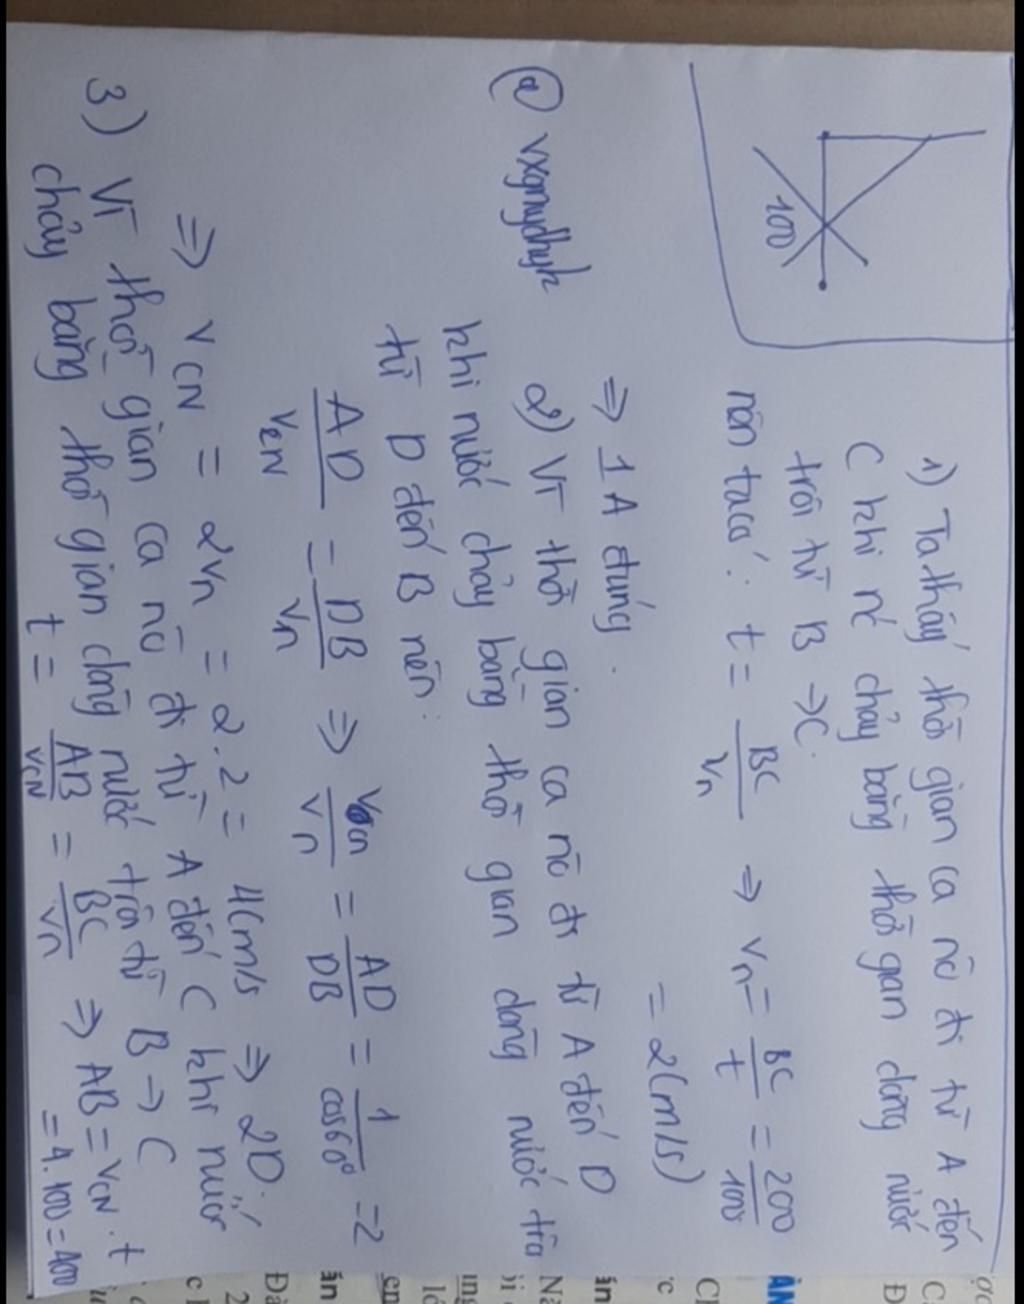 1) Ta thấy thời gian ca nô đi từ A đến
C khi nc chảy bằng thời gian dòng nước
trôi từ B → C.
nên ta có: t = BC/vn ⇒ vn = BC/t = 200/100
= 2(m/s)
⇒ 1A đúng.
100
@ vxgmydhyk
2) Vì thời gian ca nô đi từ A đến D
khi nước chảy bằng thời gian dòng nước trôi
từ D đến B nên:
AD/vCN = DB/vn ⇒ vcn/vn = AD/DB = 1/cos60° = 2
⇒ vCN = 2vn = 2.2 = 4(m/s ⇒ 2D.
3) Vì thời gian ca nô đi từ A đến C khi nước
chảy bằng thời gian dòng nước trôi từ B → C
t = AB/vCN = BC/vn ⇒ AB = vCN . t
= 4.100 = 400